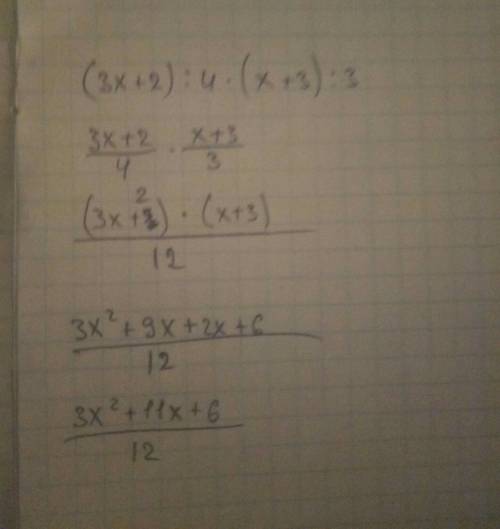 (3x+2):4·(x+3):3
3x+2/4 · x+3/3
(3x+2)·(x+3)/12
3x²+9x+2x+6/12
3x²+11x+6/12